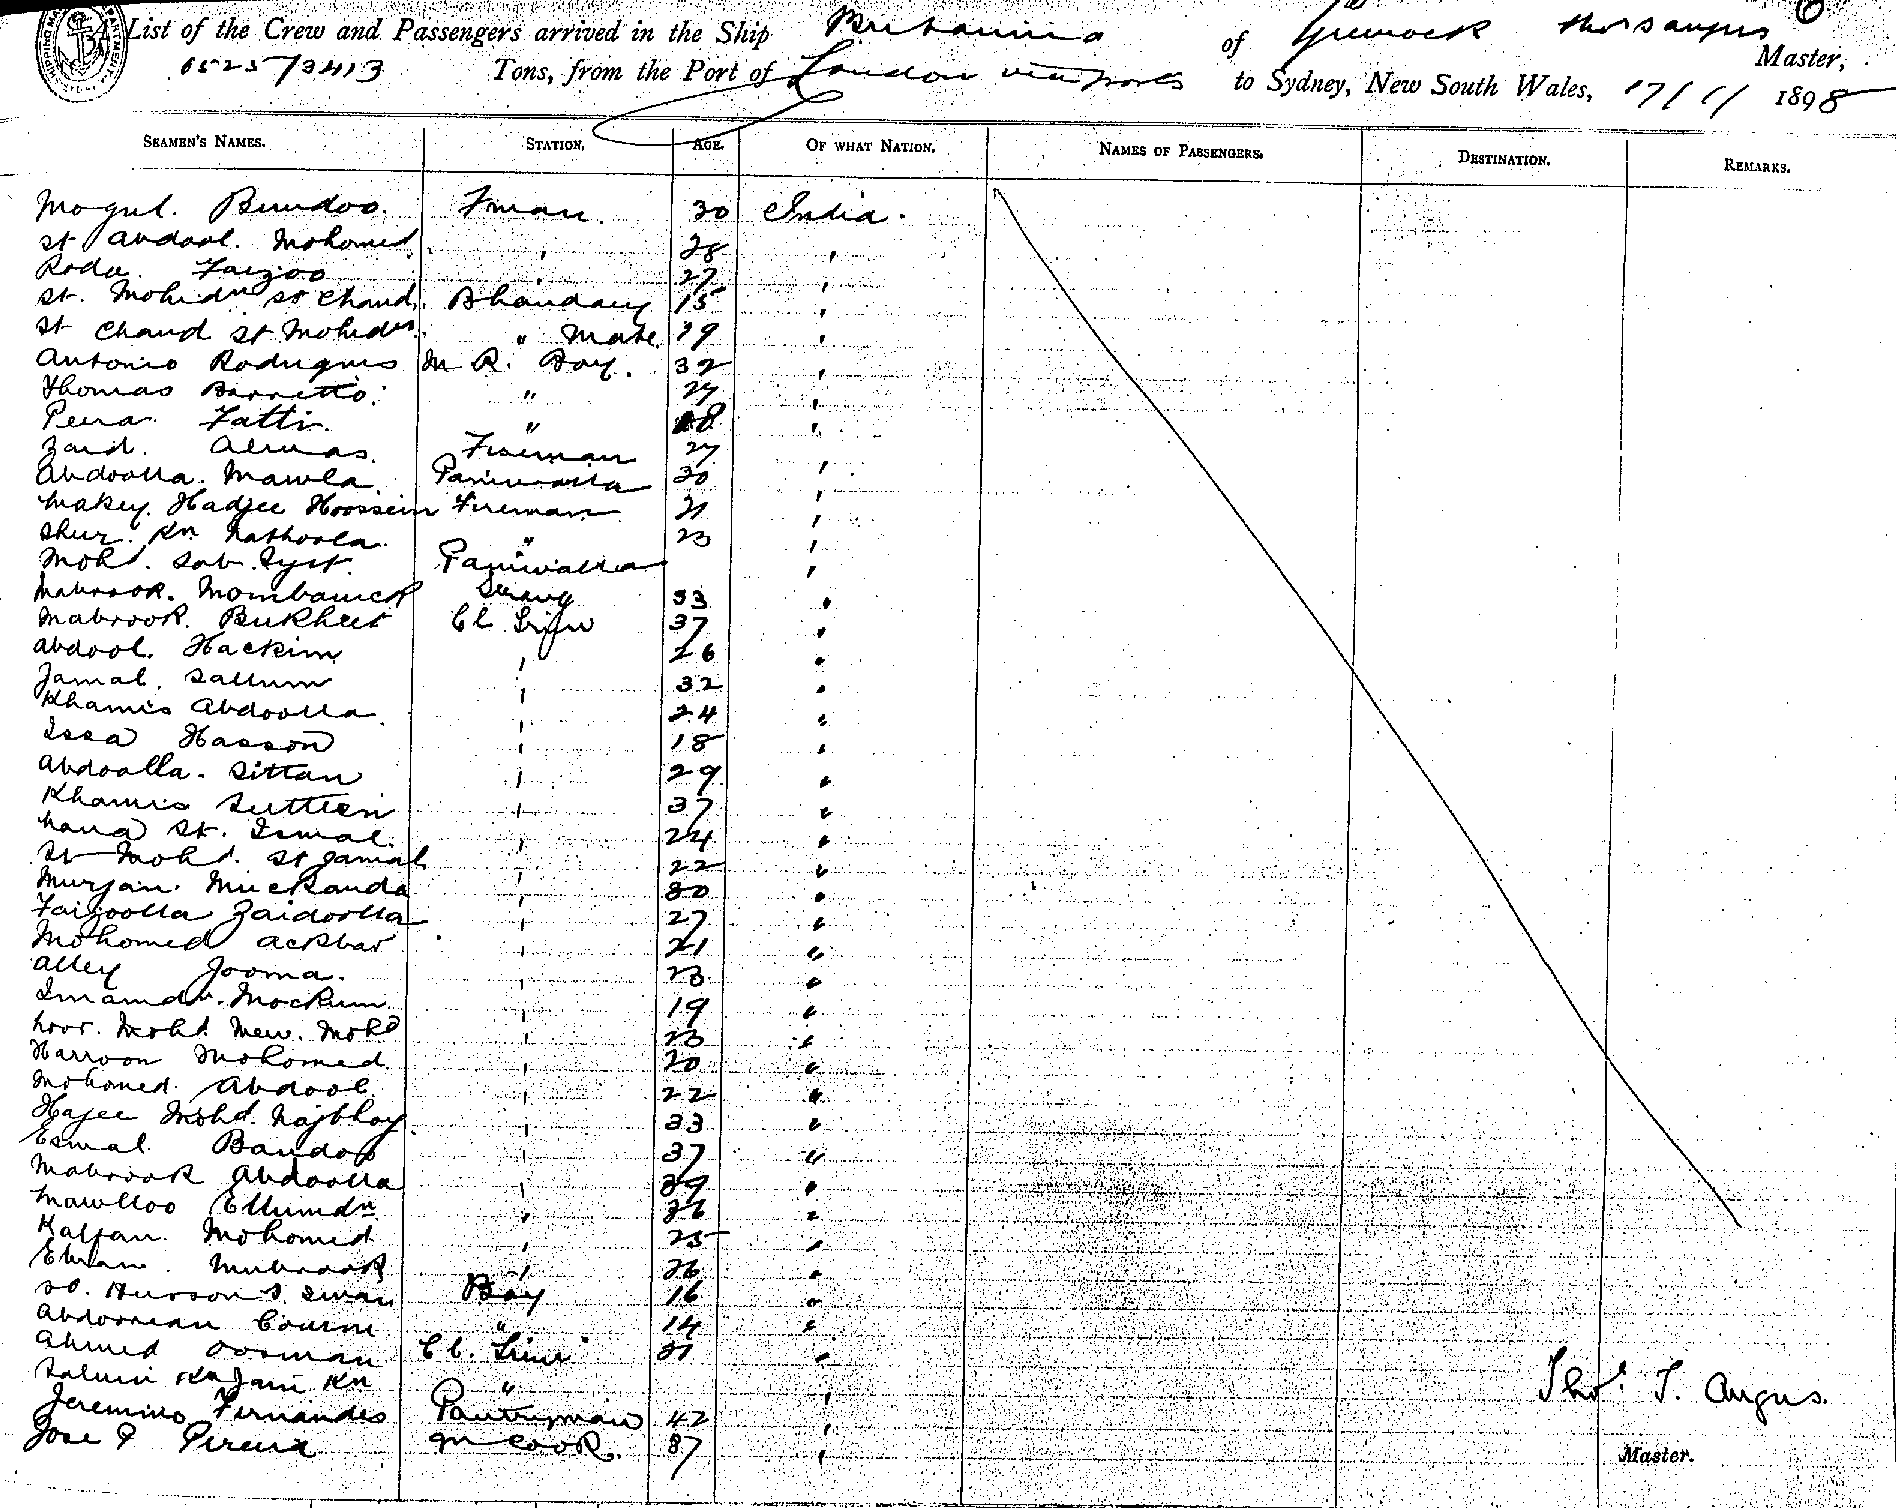 List of the Crew and Passengers arrived in the Ship Britannia of Greenock Thos S Angus Master,
6525/3413 Tons, from the Port of London via ports to Sydney, New South Wales, 17/1/ 1898
SEAMEN'S NAMES. STATION, AGE. OF WHAT NATION. NAMES OF PASSENGERS. DESTINATION. REMARKS.
Mogul. Bundoo. Fman. 30 India.
St Abdool. Mohomed 28
Roda. Faizoo 27
St. Mohidn St Chand. Bhandary 15
St Chand St Mohidn. " Mate 19
Antonio Rodrigues M R. Boy. 32
Thomas Barretto. " 27
Peera Fatti. "
Zaid. Almas. Fireman 27
Abdoolla. Mawla. Paniwalla 30
Makey. Hadjee Hoossein Fireman 21
Shur. Kn Nathoola. " 23
Mohd. Paniwalla
Mabrook. Mombarick Serang 33
Mabrook. Bukheet Cl. 37
Abdool. Hackim 26
Jamal. Sallum 32
Khamis Abdoolla. 24
Issa Hasson 18
Abdoolla. Sittan 29
Khamis 37
St. Ismal. 24
St Mohd. St Jamal 22
Murjan. Muckanda 30
Faizoolla Zaidoolla 27
Mohomed Ackbar 21
Alley Jooma. 23
Imamdn. Mockum. 19
Noor. Mohd. Mew. Mohd 23
Harroon Mohomed 20
Mohomed. Abdool. 22
Hajee Mohd. Najbhoy. 33
Esmal. Bandoo 37
Mabrook Abdoolla 39
Mawlloo Ellumdn 36
Kalfan. Mohomed 25
Ebram. Mubrook 26
Husson Boy 16
" 14
Ahmed Oosman Cl. 21
Kn Jani Kn "
Jeremino Fernandes Pantryman 42
Jose P Pereira M Cook. 37
Thos. S. Angus.
Master.